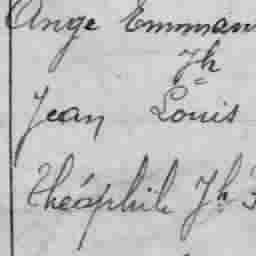 Ange Emman
Jh
Jean Louis
Théophile Jh